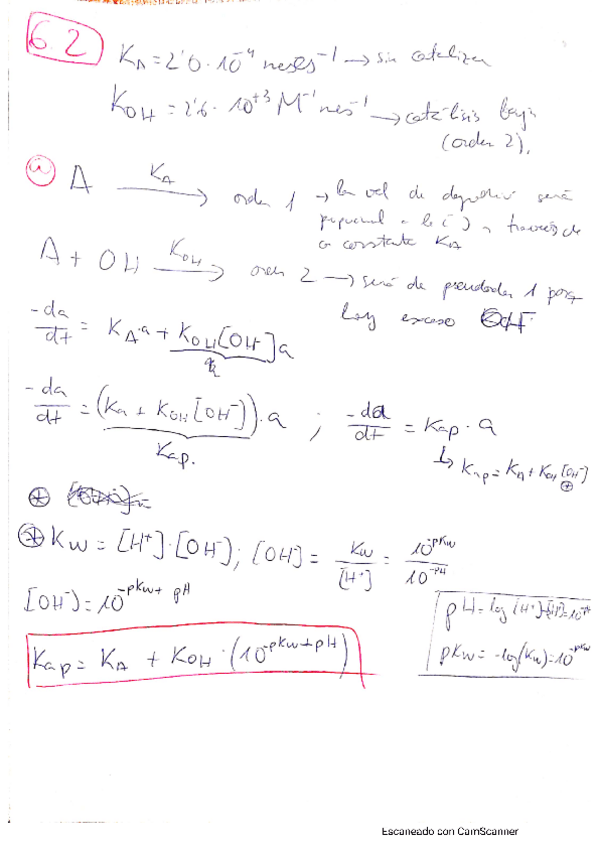 6.2
K_A = 2'0·10⁻⁴ meses⁻¹ → sin catalizar
K_OH = 2'6·10⁺³ M⁻¹ mes⁻¹ → catálisis
(orden 2).
a) A —K_A→ orden 1 → la vel de será
a la ( ) a través de
la constante K_A
A + OH —K_OH→ orden 2 → será de pseudoorden 1 porq
hay exceso OH⁻
-da/dt = K_A·a + K_OH[OH⁻]a
-da/dt = (Ka + K_OH[OH⁻])·a ; -da/dt = Kap·a
Kap.
↳ Kap = K_A + K_OH[OH⁻]
⊛
⊛ Kw = [H⁺]·[OH⁻]; [OH⁻] = Kw/[H⁺] = 10⁻ᵖᴷʷ/10⁻ᵖᴴ
[OH⁻] = 10⁻ᵖᴷʷ⁺ᵖᴴ
pH = -log [H⁺]
pKw = -log(Kw) = 10⁻ᵖᴷʷ
Kap = K_A + K_OH·(10⁻ᵖᴷʷ⁺ᵖᴴ)
Escaneado con CamScanner